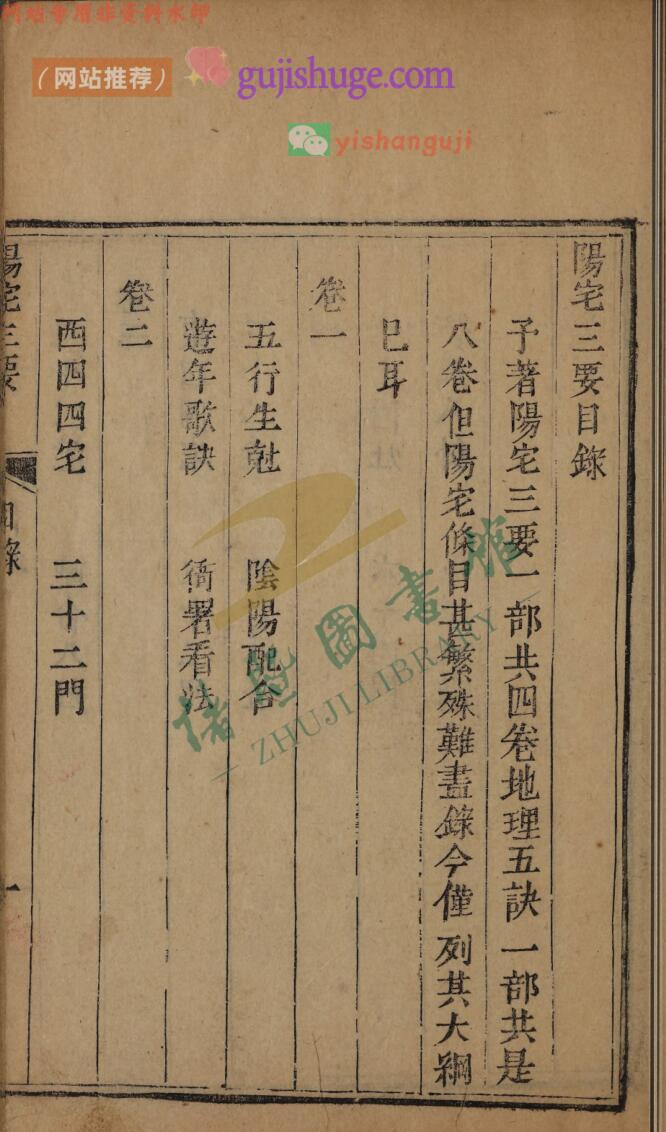 网站会用非资料水印
（网站推荐）
gujishuge.com
yishanguji
陽宅三要目錄
予著陽宅三要一部共四卷地理五訣一部共是
八卷但陽宅條目甚繁殊難盡錄今僅列其大綱
巳耳
卷一
五行生尅 陰陽配合
遊年歌訣 衙署看法
卷二
西四四宅 三十二門
陽宅三要 目錄 一
諸暨圖書館
ZHUJI LIBRARY